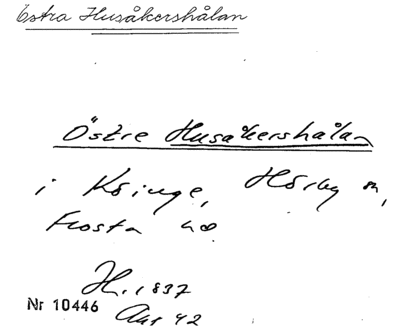 Östra Husåkershålan
Östre Husåkershålan
i Köinge, Hörby sn,
Frosta hd
H. 1837
Nr 10446
Akt 42